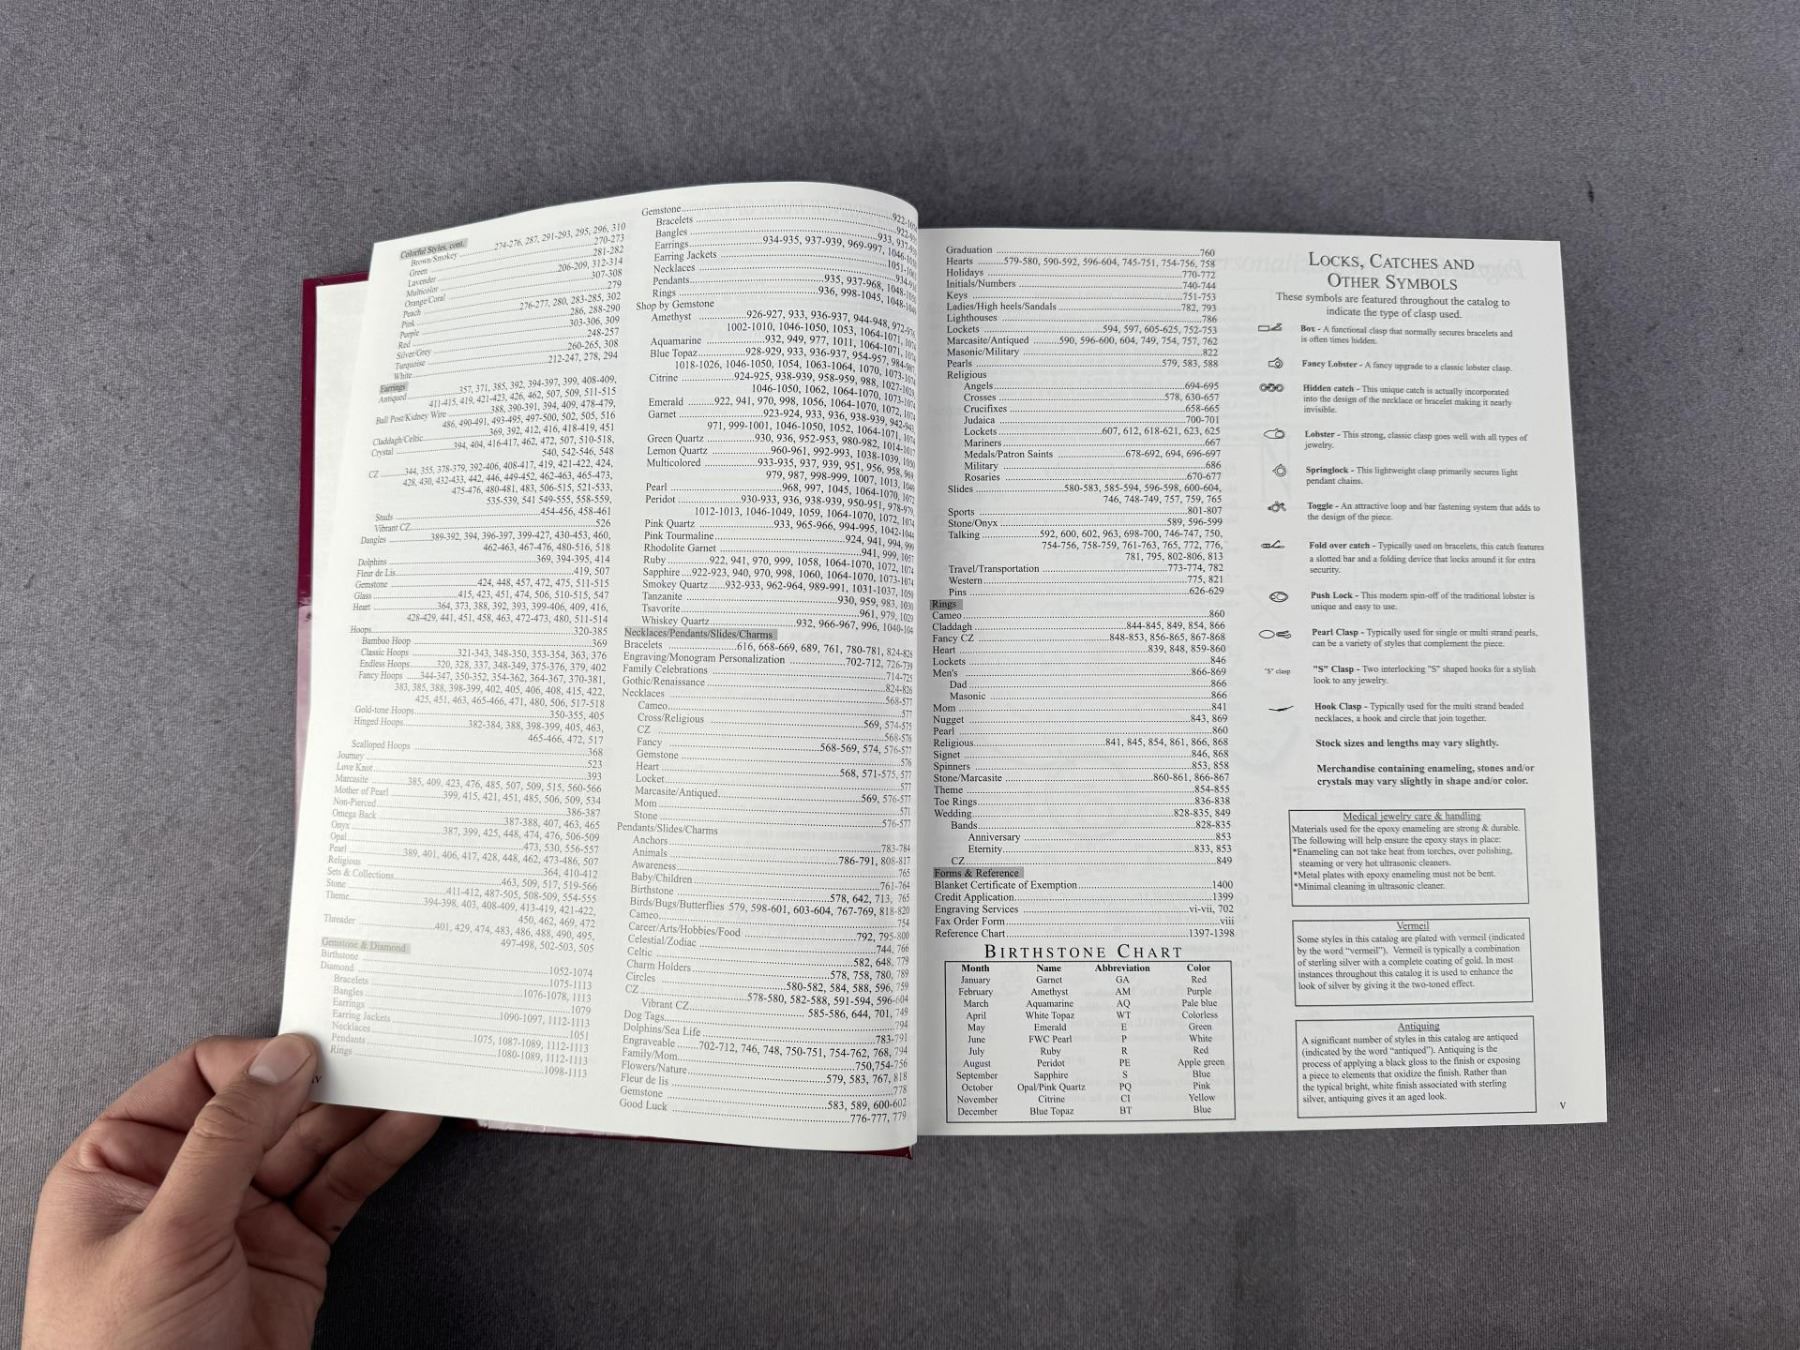 Colorful Styles, cont.
Brown/Smokey ..... 274-276, 287, 291-293, 295, 296, 310
Green ..... 270-273
Lavender ..... 281-282
Multicolor ..... 206-209, 312-314
Orange/Coral ..... 307-308
Peach ..... 279
Pink ..... 276-277, 280, 283-285, 302
Purple ..... 286, 288-290
Red ..... 303-306, 309
Silver/Grey ..... 248-257
Turquoise ..... 260-265, 308
White ..... 212-247, 278, 294
Earrings
Antiqued ..... 357, 371, 385, 392, 394-397, 399, 408-409,
411-415, 419, 421-423, 426, 462, 507, 509, 511-515
Ball Post/Kidney Wire ..... 388, 390-391, 394, 409, 478-479,
486, 490-491, 493-495, 497-500, 502, 505, 516
Claddagh/Celtic ..... 369, 392, 412, 416, 418-419, 451
Crystal ..... 394, 404, 416-417, 462, 472, 507, 510-518,
540, 542-546, 548
CZ ..... 344, 355, 378-379, 392-406, 408-417, 419, 421-422, 424,
428, 430, 432-433, 442, 446, 449-452, 462-463, 465-473,
475-476, 480-481, 483, 506-515, 521-533,
535-539, 541 549-555, 558-559,
Studs ..... 454-456, 458-461
Vibrant CZ ..... 526
Dangles ..... 389-392, 394, 396-397, 399-427, 430-453, 460,
462-463, 467-476, 480-516, 518
Dolphins ..... 369, 394-395, 414
Fleur de Lis ..... 419, 507
Gemstone ..... 424, 448, 457, 472, 475, 511-515
Glass ..... 415, 423, 451, 474, 506, 510-515, 547
Heart ..... 364, 373, 388, 392, 393, 399-406, 409, 416,
428-429, 441, 451, 458, 463, 472-473, 480, 511-514
Hoops ..... 320-385
Bamboo Hoop ..... 369
Classic Hoops ..... 321-343, 348-350, 353-354, 363, 376
Endless Hoops ..... 320, 328, 337, 348-349, 375-376, 379, 402
Fancy Hoops ..... 344-347, 350-352, 354-362, 364-367, 370-381,
383, 385, 388, 398-399, 402, 405, 406, 408, 415, 422,
425, 451, 463, 465-466, 471, 480, 506, 517-518
Gold-tone Hoops ..... 350-355, 405
Hinged Hoops ..... 382-384, 388, 398-399, 405, 463,
465-466, 472, 517
Scalloped Hoops ..... 368
Journey ..... 523
Love Knot ..... 393
Marcasite ..... 385, 409, 423, 476, 485, 507, 509, 515, 560-566
Mother of Pearl ..... 399, 415, 421, 451, 485, 506, 509, 534
Non-Pierced ..... 386-387
Omega Back ..... 387-388, 407, 463, 465
Onyx ..... 387, 399, 425, 448, 474, 476, 506-509
Opal ..... 473, 530, 556-557
Pearl ..... 389, 401, 406, 417, 428, 448, 462, 473-486, 507
Religious ..... 364, 410-412
Sets & Collections ..... 463, 509, 517, 519-566
Stone ..... 411-412, 487-505, 508-509, 554-555
Theme ..... 394-398, 403, 408-409, 413-419, 421-422,
450, 462, 469, 472
Threader ..... 401, 429, 474, 483, 486, 488, 490, 495,
497-498, 502-503, 505
Gemstone & Diamond
Birthstone ..... 1052-1074
Diamond ..... 1075-1113
Bracelets ..... 1076-1078, 1113
Bangles ..... 1079
Earrings ..... 1090-1097, 1112-1113
Earring Jackets ..... 1051
Necklaces ..... 1075, 1087-1089, 1112-1113
Pendants ..... 1080-1089, 1112-1113
Rings ..... 1098-1113
Gemstone
Bracelets
Bangles ..... 933,
Earrings ..... 934-935, 937-939, 969-997,
Earring Jackets
Necklaces
Pendants ..... 935, 937-968,
Rings ..... 936, 998-1045,
Shop by Gemstone
Amethyst ..... 926-927, 933, 936-937, 944-948,
1002-1010, 1046-1050, 1053, 1064-1071,
Aquamarine ..... 932, 949, 977, 1011, 1064-1071,
Blue Topaz ..... 928-929, 933, 936-937, 954-957,
1018-1026, 1046-1050, 1054, 1063-1064, 1070,
Citrine ..... 924-925, 938-939, 958-959, 988,
1046-1050, 1062, 1064-1070,
Emerald ..... 922, 941, 970, 998, 1056, 1064-1070, 1072,
Garnet ..... 923-924, 933, 936, 938-939,
971, 999-1001, 1046-1050, 1052, 1064-1071,
Green Quartz ..... 930, 936, 952-953, 980-982,
Lemon Quartz ..... 960-961, 992-993, 1038-1039,
Multicolored ..... 933-935, 937, 939, 951, 956, 958,
979, 987, 998-999, 1007, 1013,
Pearl ..... 968, 997, 1045, 1064-1070,
Peridot ..... 930-933, 936, 938-939, 950-951,
1012-1013, 1046-1049, 1059, 1064-1070, 1072,
Pink Quartz ..... 933, 965-966, 994-995,
Pink Tourmaline ..... 924, 941, 994,
Rhodolite Garnet ..... 941, 999,
Ruby ..... 922, 941, 970, 999, 1058, 1064-1070, 1072,
Sapphire ..... 922-923, 940, 970, 998, 1060, 1064-1070,
Smokey Quartz ..... 932-933, 962-964, 989-991, 1031-1037,
Tanzanite ..... 930, 959, 983,
Tsavorite ..... 961, 979,
Whiskey Quartz ..... 932, 966-967, 996,
Necklaces/Pendants/Slides/Charms
Bracelets ..... 616, 668-669, 689, 761, 780-781, 824-826
Engraving/Monogram Personalization ..... 702-712, 726-739
Family Celebrations ..... 714-725
Gothic/Renaissance ..... 824-826
Necklaces ..... 568-577
Cameo ..... 577
Cross/Religious ..... 569, 574-575
CZ ..... 568-576
Fancy ..... 568-569, 574, 576-577
Gemstone ..... 576
Heart ..... 568, 571-575, 577
Locket ..... 577
Marcasite/Antiqued ..... 569, 576-577
Mom ..... 571
Stone ..... 576-577
Pendants/Slides/Charms
Anchors ..... 783-784
Animals ..... 786-791, 808-817
Awareness ..... 765
Baby/Children ..... 761-764
Birthstone ..... 578, 642, 713, 765
Birds/Bugs/Butterflies 579, 598-601, 603-604, 767-769, 818-820
Cameo ..... 754
Career/Arts/Hobbies/Food ..... 792, 795-800
Celestial/Zodiac ..... 744, 766
Celtic ..... 582, 648, 779
Charm Holders ..... 578, 758, 780, 789
Circles ..... 580-582, 584, 588, 596, 759
CZ ..... 578-580, 582-588, 591-594, 596-604
Vibrant CZ ..... 585-586, 644, 701, 749
Dog Tags ..... 794
Dolphins/Sea Life ..... 783-791
Engraveable ..... 702-712, 746, 748, 750-751, 754-762, 768, 794
Family/Mom ..... 750,754-756
Flowers/Nature ..... 579, 583, 767, 818
Fleur de lis ..... 778
Gemstone ..... 583, 589, 600-602
Good Luck ..... 776-777, 779
Graduation ..... 760
Hearts ..... 579-580, 590-592, 596-604, 745-751, 754-756, 758
Holidays ..... 770-772
Initials/Numbers ..... 740-744
Keys ..... 751-753
Ladies/High heels/Sandals ..... 782, 793
Lighthouses ..... 786
Lockets ..... 594, 597, 605-625, 752-753
Marcasite/Antiqued ..... 590, 596-600, 604, 749, 754, 757, 762
Masonic/Military ..... 822
Pearls ..... 579, 583, 588
Religious
Angels ..... 694-695
Crosses ..... 578, 630-657
Crucifixes ..... 658-665
Judaica ..... 700-701
Lockets ..... 607, 612, 618-621, 623, 625
Mariners ..... 667
Medals/Patron Saints ..... 678-692, 694, 696-697
Military ..... 686
Rosaries ..... 670-677
Slides ..... 580-583, 585-594, 596-598, 600-604,
746, 748-749, 757, 759, 765
Sports ..... 801-807
Stone/Onyx ..... 589, 596-599
Talking ..... 592, 600, 602, 963, 698-700, 746-747, 750,
754-756, 758-759, 761-763, 765, 772, 776,
781, 795, 802-806, 813
Travel/Transportation ..... 773-774, 782
Western ..... 775, 821
Pins ..... 626-629
Rings
Cameo ..... 860
Claddagh ..... 844-845, 849, 854, 866
Fancy CZ ..... 848-853, 856-865, 867-868
Heart ..... 839, 848, 859-860
Lockets ..... 846
Men's ..... 866-869
Dad ..... 866
Masonic ..... 866
Mom ..... 841
Nugget ..... 843, 869
Pearl ..... 860
Religious ..... 841, 845, 854, 861, 866, 868
Signet ..... 846, 868
Spinners ..... 853, 858
Stone/Marcasite ..... 860-861, 866-867
Theme ..... 854-855
Toe Rings ..... 836-838
Wedding ..... 828-835, 849
Bands ..... 828-835
Anniversary ..... 853
Eternity ..... 833, 853
CZ ..... 849
Forms & Reference
Blanket Certificate of Exemption ..... 1400
Credit Application ..... 1399
Engraving Services ..... vi-vii, 702
Fax Order Form ..... viii
Reference Chart ..... 1397-1398
BIRTHSTONE CHART
Month Name Abbreviation Color
January Garnet GA Red
February Amethyst AM Purple
March Aquamarine AQ Pale blue
April White Topaz WT Colorless
May Emerald E Green
June FWC Pearl P White
July Ruby R Red
August Peridot PE Apple green
September Sapphire S Blue
October Opal/Pink Quartz PQ Pink
November Citrine CI Yellow
December Blue Topaz BT Blue
LOCKS, CATCHES AND
OTHER SYMBOLS
These symbols are featured throughout the catalog to
indicate the type of clasp used.
Box - A functional clasp that normally secures bracelets and
is often times hidden.
Fancy Lobster - A fancy upgrade to a classic lobster clasp.
Hidden catch - This unique catch is actually incorporated
into the design of the necklace or bracelet making it nearly
invisible.
Lobster - This strong, classic clasp goes well with all types of
jewelry.
Springlock - This lightweight clasp primarily secures light
pendant chains.
Toggle - An attractive loop and bar fastening system that adds to
the design of the piece.
Fold over catch - Typically used on bracelets, this catch features
a slotted bar and a folding device that locks around it for extra
security.
Push Lock - This modern spin-off of the traditional lobster is
unique and easy to use.
Pearl Clasp - Typically used for single or multi strand pearls,
can be a variety of styles that complement the piece.
"S" clasp "S" Clasp - Two interlocking "S" shaped hooks for a stylish
look to any jewelry.
Hook Clasp - Typically used for the multi strand beaded
necklaces, a hook and circle that join together.
Stock sizes and lengths may vary slightly.
Merchandise containing enameling, stones and/or
crystals may vary slightly in shape and/or color.
Medical jewelry care & handling
Materials used for the epoxy enameling are strong & durable.
The following will help ensure the epoxy stays in place:
*Enameling can not take heat from torches, over polishing,
steaming or very hot ultrasonic cleaners.
*Metal plates with epoxy enameling must not be bent.
*Minimal cleaning in ultrasonic cleaner.
Vermeil
Some styles in this catalog are plated with vermeil (indicated
by the word "vermeil"). Vermeil is typically a combination
of sterling silver with a complete coating of gold. In most
instances throughout this catalog it is used to enhance the
look of silver by giving it the two-toned effect.
Antiquing
A significant number of styles in this catalog are antiqued
(indicated by the word "antiqued"). Antiquing is the
process of applying a black gloss to the finish or exposing
a piece to elements that oxidize the finish. Rather than
the typical bright, white finish associated with sterling
silver, antiquing gives it an aged look.
V